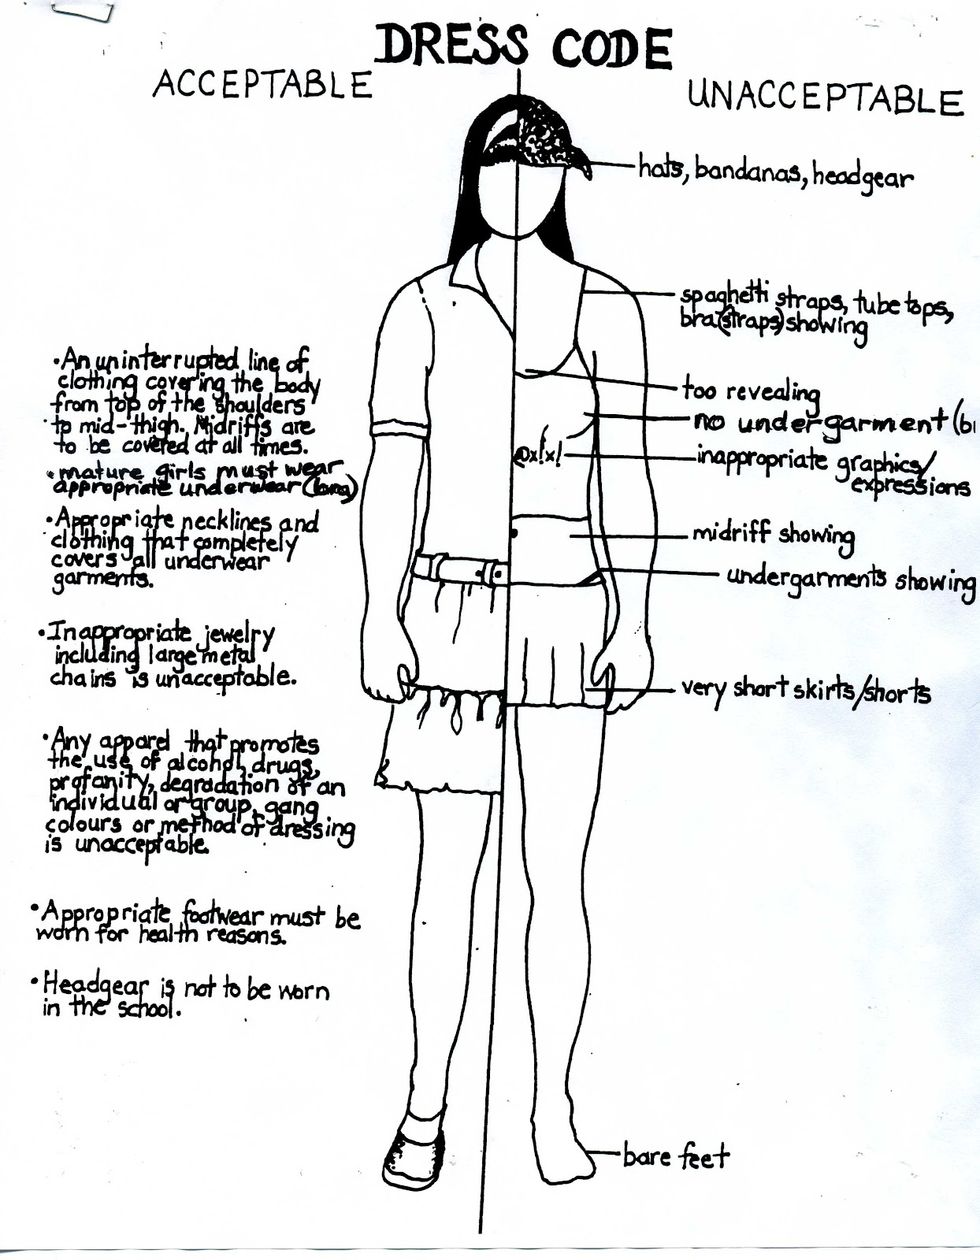 DRESS CODE
ACCEPTABLE
UNACCEPTABLE
hats, bandanas, headgear
spaghetti straps, tube tops,
bra(straps) showing
too revealing
no undergarment (b
inappropriate graphics/
expressions
midriff showing
undergarments showing
very short skirts/shorts
bare feet
@x!x!
•An uninterrupted line of
clothing covering the body
from top of the shoulders
to mid-thigh. Midriffs are
to be covered at all times.
•mature girls must wear
appropriate underwear (bra)
•Appropriate necklines and
clothing that completely
covers all underwear
garments.
•Inappropriate jewelry
including large metal
chains is unacceptable.
•Any apparel that promotes
the use of alcohol, drugs,
profanity, degradation of an
individual or group, gang
colours or method of dressing
is unacceptable.
•Appropriate footwear must be
worn for health reasons.
•Headgear is not to be worn
in the school.